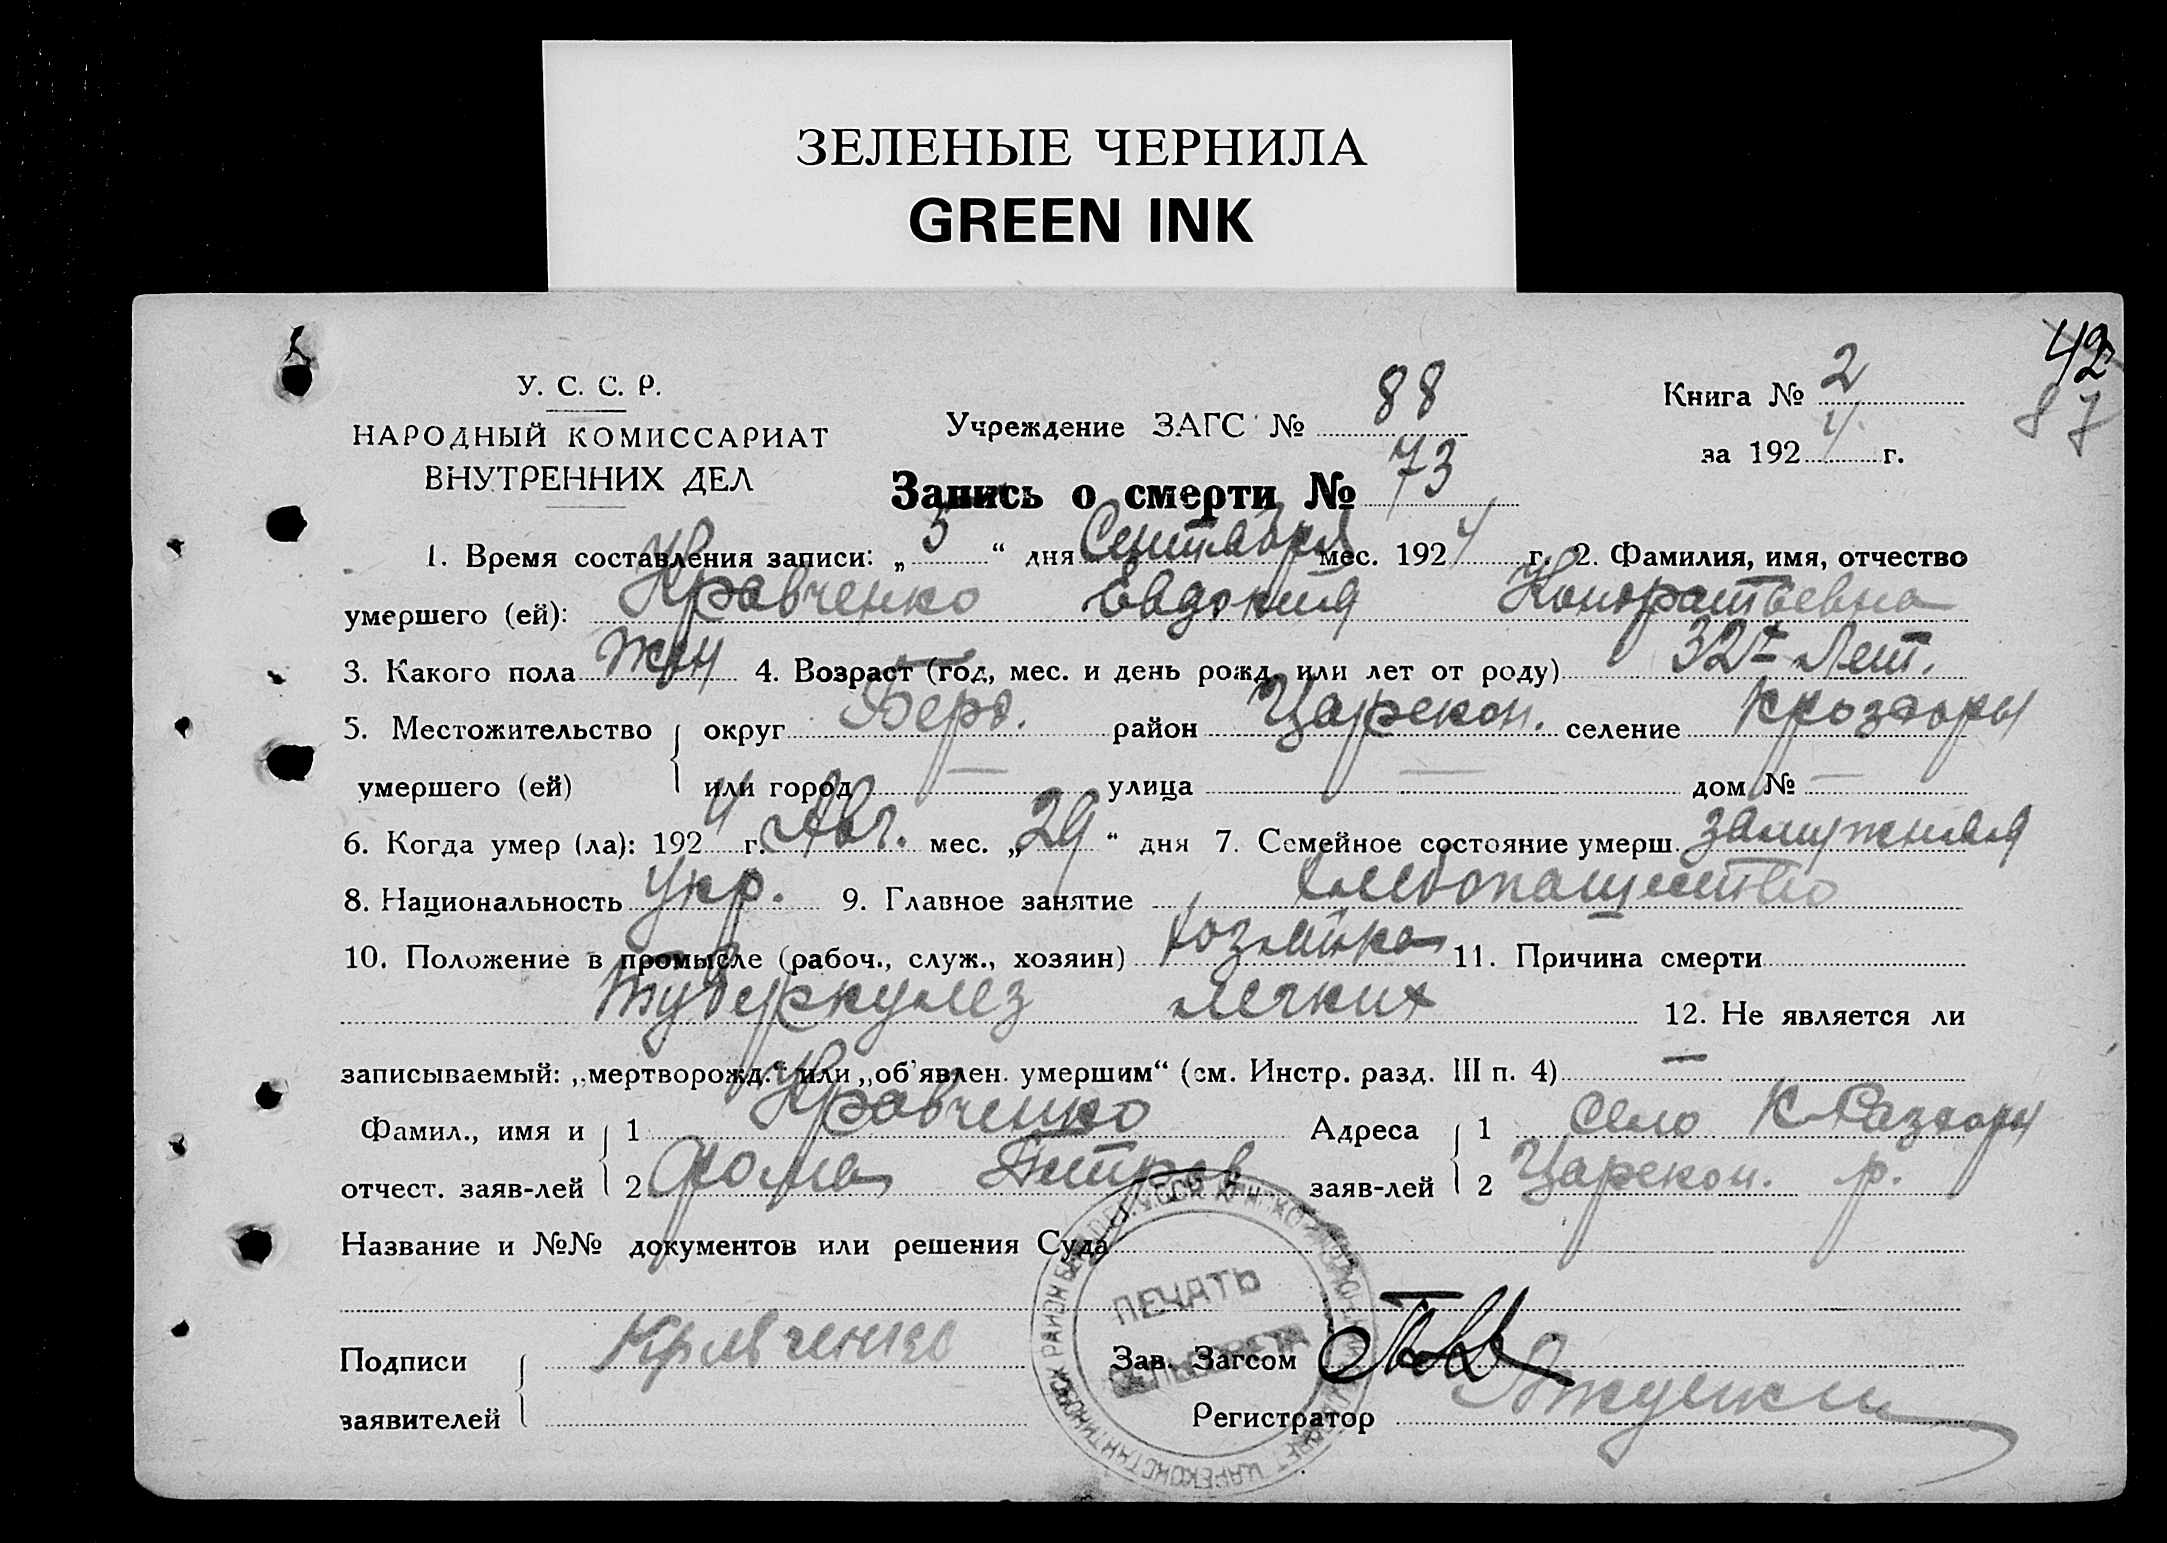 ЗЕЛЕНЫЕ ЧЕРНИЛА
GREEN INK
42
87
У. С. С. Р.
НАРОДНЫЙ КОМИССАРИАТ
ВНУТРЕННИХ ДЕЛ
Учреждение ЗАГС № 88
Книга № 2
за 1924 г.
Запись о смерти № 73
1. Время составления записи: „ 5 “ дня Сентября мес. 1924 г. 2. Фамилия, имя, отчество
умершего (ей): Кравченко Евдокия Кондратьевна
3. Какого пола жен 4. Возраст (год, мес. и день рожд. или лет от роду) 32 Лет.
5. Местожительство округ Берд. район Царекон. селение Крозворы
умершего (ей) или город — улица — дом № —
6. Когда умер (ла): 1924 г. Авг. мес. „ 29 “ дня 7. Семейное состояние умерш. замужняя
8. Национальность Укр. 9. Главное занятие Хлебопашество
10. Положение в промысле (рабоч., служ., хозяин) хозяйка 11. Причина смерти
Туберкулез легких 12. Не является ли
записываемый: „мертворожд.“ или „об'явлен. умершим“ (см. Инстр. разд. III п. 4) —
Фамил., имя и 1 Кравченко Адреса 1 Село К-Раздоры
отчест. заяв-лей 2 Фома Петров заяв-лей 2 Царекон. р.
Название и №№ документов или решения Суда
ПЕЧАТЬ
СЕЛЬСОВЕТА
Подписи Кравченко Зав. Загсом
заявителей Регистратор